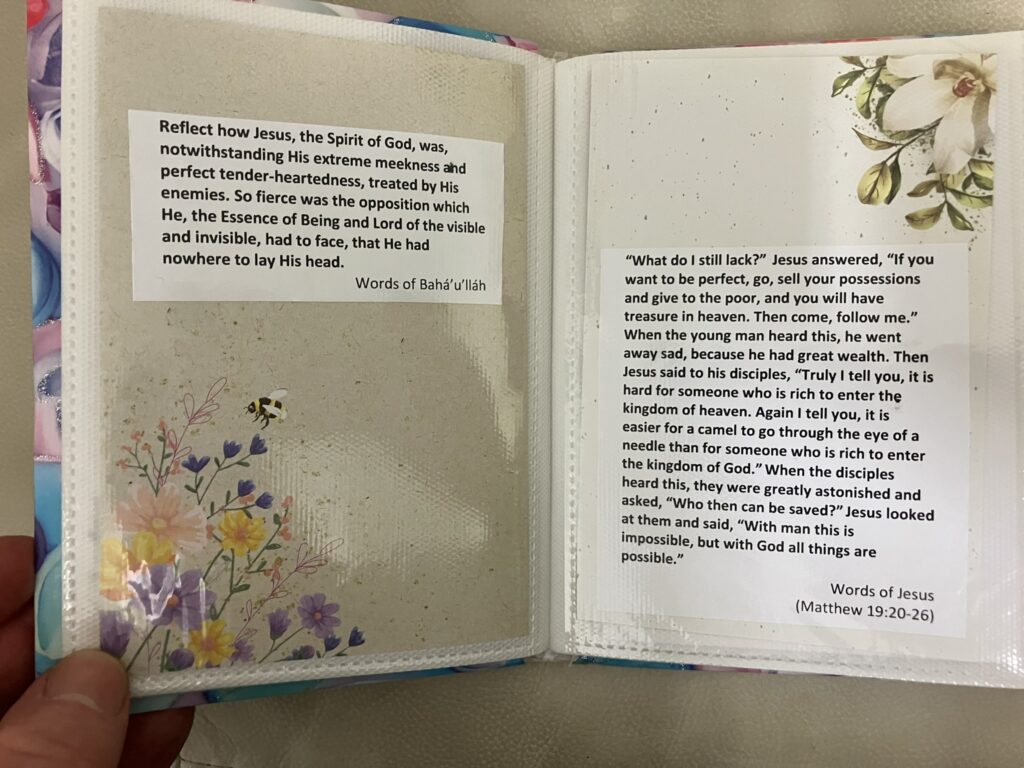 Reflect how Jesus, the Spirit of God, was,
notwithstanding His extreme meekness and
perfect tender-heartedness, treated by His
enemies. So fierce was the opposition which
He, the Essence of Being and Lord of the visible
and invisible, had to face, that He had
nowhere to lay His head.
Words of Bahá’u’lláh
“What do I still lack?” Jesus answered, “If you
want to be perfect, go, sell your possessions
and give to the poor, and you will have
treasure in heaven. Then come, follow me.”
When the young man heard this, he went
away sad, because he had great wealth. Then
Jesus said to his disciples, “Truly I tell you, it is
hard for someone who is rich to enter the
kingdom of heaven. Again I tell you, it is
easier for a camel to go through the eye of a
needle than for someone who is rich to enter
the kingdom of God.” When the disciples
heard this, they were greatly astonished and
asked, “Who then can be saved?” Jesus looked
at them and said, “With man this is
impossible, but with God all things are
possible.”
Words of Jesus
(Matthew 19:20-26)